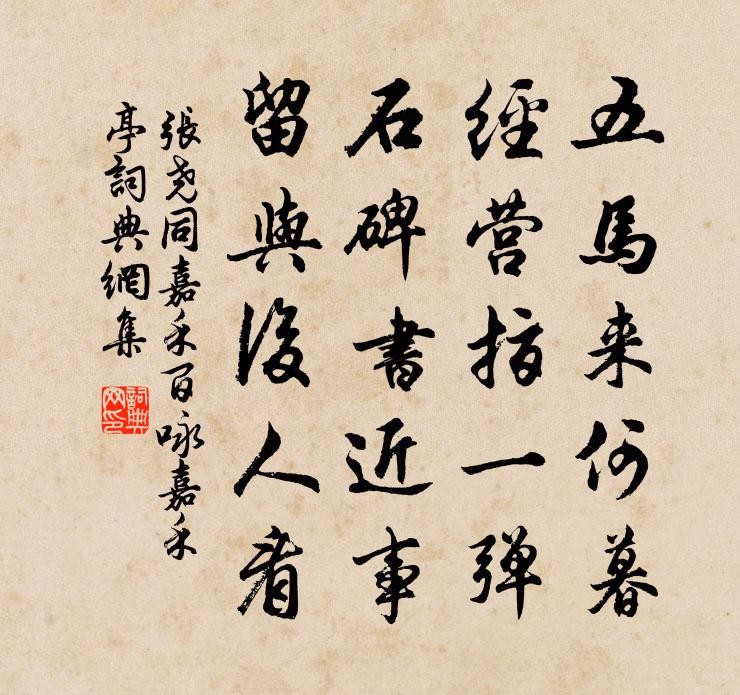 五馬来何暮
經营指一弹
石碑書近事
留與後人看
張尧同嘉禾百咏嘉禾
亭詞典網集
詞典网印